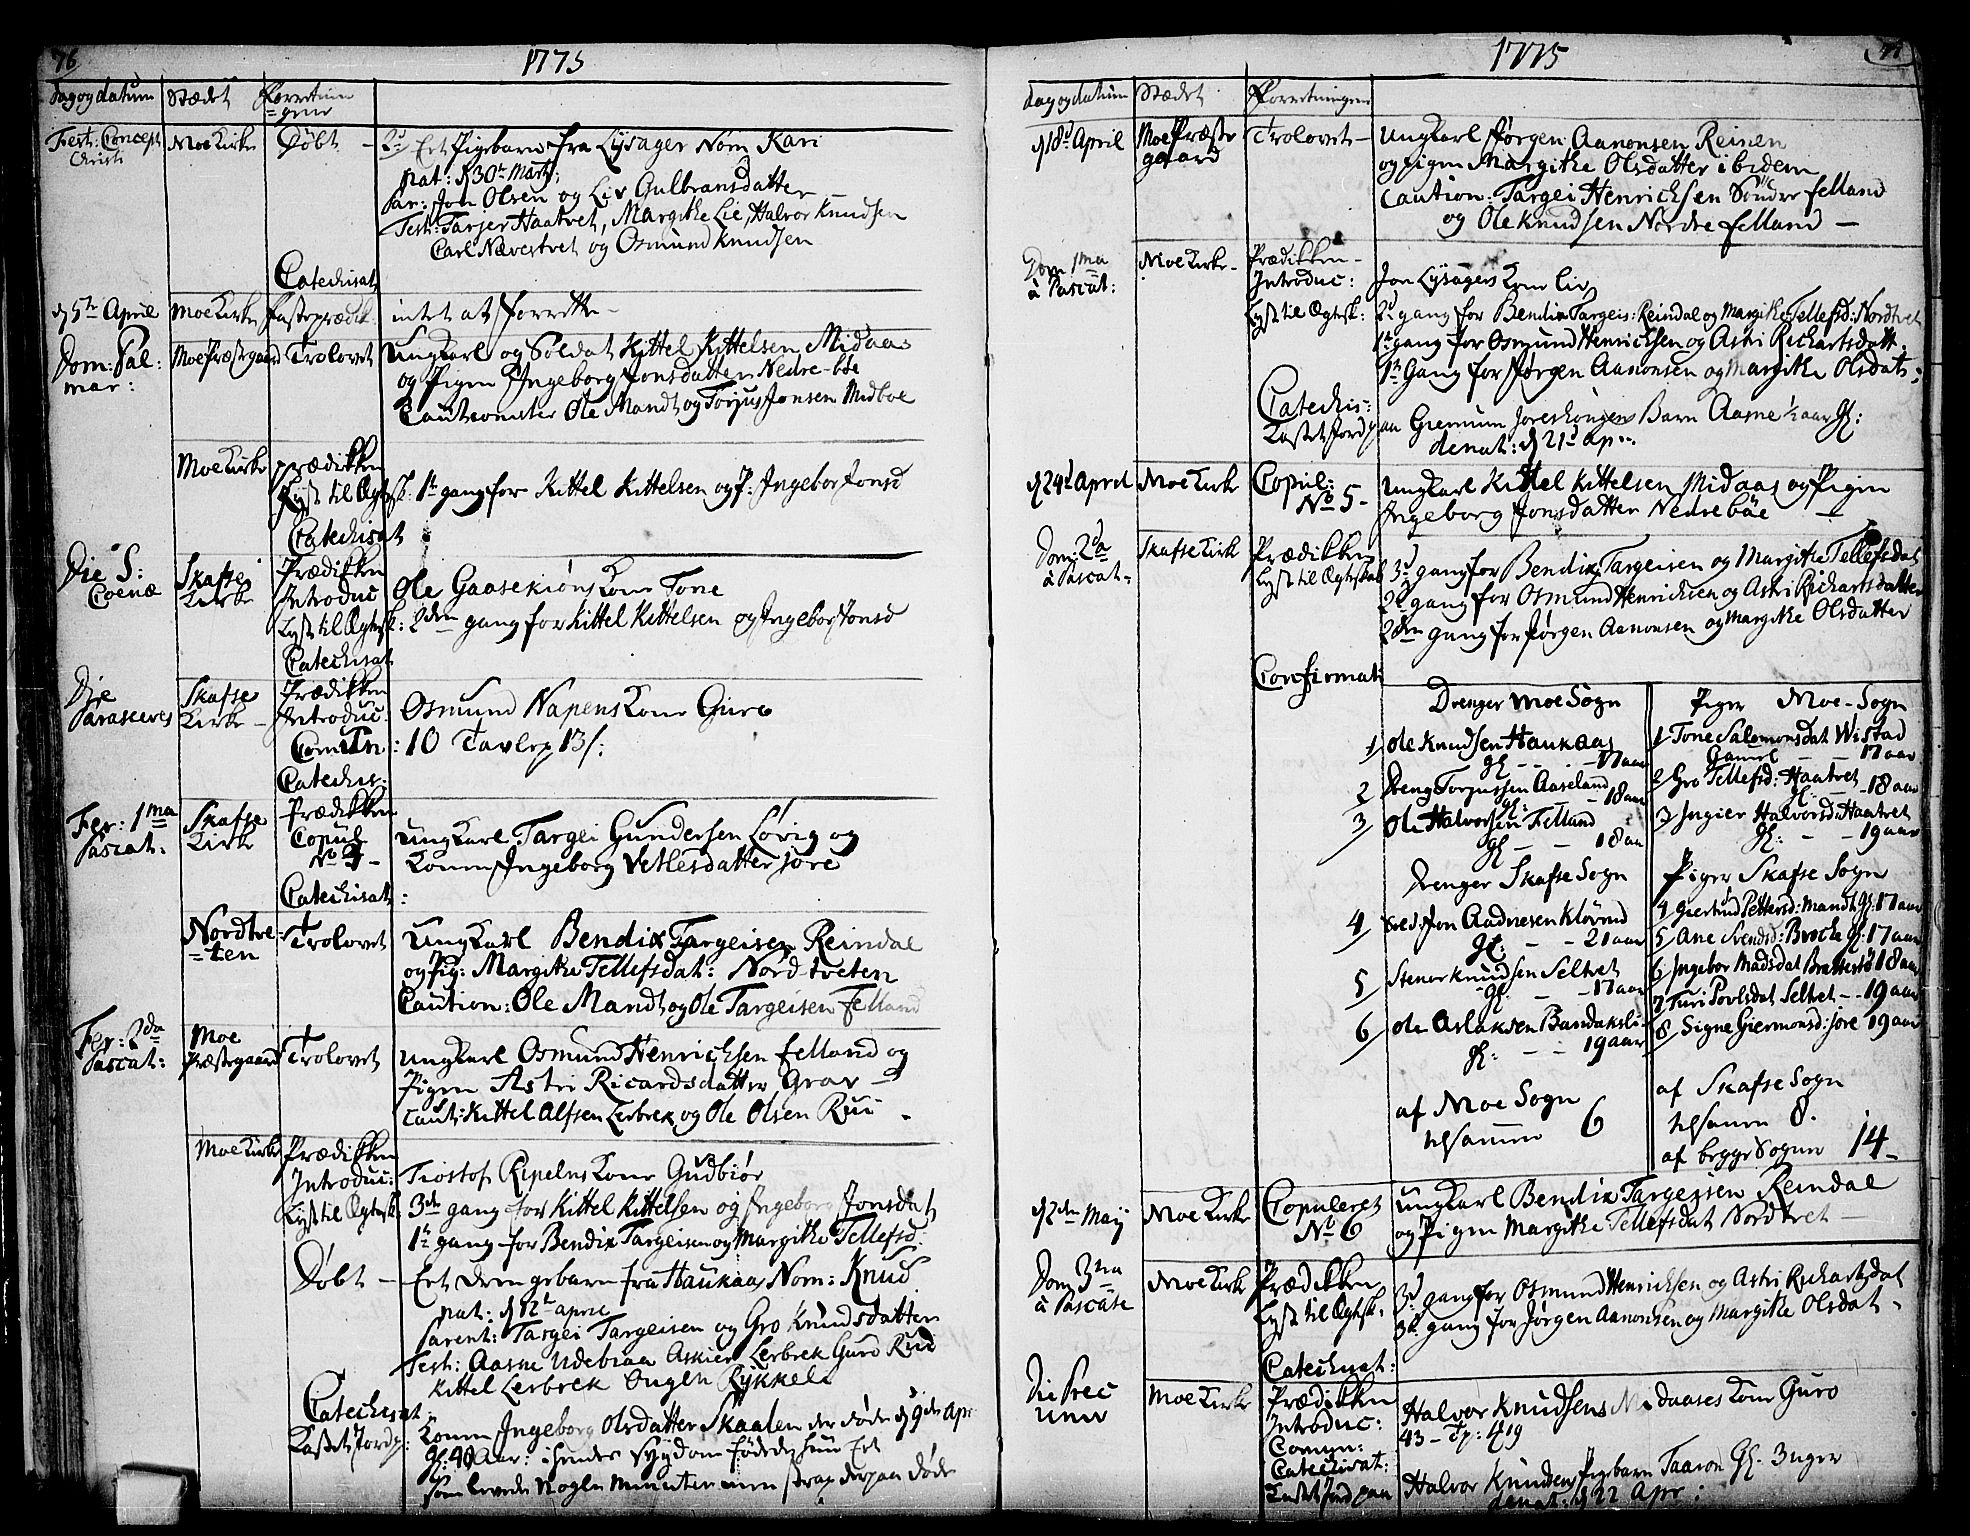 76
1775
Dag og datum Stædet Forretnin
= gene
Fest: Concept Moe Kirke Døbt - Et Pigebarn fra Lysager Nom Kari
Christi
nat: d 30te Marty:
Par: Jon Olsen og Liv Gulbransdatter -
Test: Tarjer Haatvet, Margithe Lie, Halvor Knudsen
Carl Næverstvet og Osmund Knudsen
Catechisat
d 5te April Moe Kirke Fasteprædik: intet at forrette -
Dom: Pal= Moe Præstegaard Trolovet Ungkarl og Soldat Kittel Kittelsen Midaas
mar:
og Pigen Ingeborg Jonsdatter Nedre-bøe
Cautionister Ole Mandt og Torjus Jonsen Midboe
Moe Kirke prædiken
Lyst til Ægtesk: 1te gang for Kittel Kittelsen og P: Ingebor Jonsd
Catechisat
Die S: Skafse Prædikken
Coenæ Kirke Introduc Ole Gaasekiøns Kone Tone
Lyst til Ægtesk: 2den gang for Kittel Kittelsen og Ingebor Jonsd
Catechisat
Die Skafse Prædikken
Parasceves Kirke - Introduc: Osmund Napens Kone Guro
Comun: 10 Tavlep 13/:
Catechis:
Fer: 1ma Skafse Prædikken
Pascat: Kirke Copul: Ungkarl Targei Gundersen Lovig og
No 4 - Konen Ingeborg Vetlesdatter Jore
Catechisat:
Nordtve Trolovet Ungkarl Bendix Targeisen Reindal
= ten
og Pig: Margithe Tellefsdat: Nordtveten
Caution: Ole Mandt og Ole Targeisen Felland
Fer: 2da Moe
Pascat: Præstegaard Trolovet Ungkarl Osmund Henrichsen Felland og
Pigen Astri Ricardsdatter Grav -
Caut: Kittel Alfsen Lerbrek og Ole Olsen Ruu -
Moe Kirke Prædikken
Introduc: Trostof Ripelns Kone Gudbiør
Lyst til Ægtesk: 3de gang for Kittel Kittelsen og Ingeborg Jonsdat
1te gang for Bendix Targeisen og Margithe Tellefsd:
Døbt - Et Drengebarn fra Haukaas Nom: Knud
nat: d 12te april
Parent: Targei Targeisen og Gro Knudsdatter
Test: Aasne Udebraa Askier Lerbrek Guro Ruu
Kittel Lerbrek Ungk Rykkel
Catechisat:
Kastet Jord p: Konen Ingeborg Olsdatter Skaalen der døde d 9de Apr
Gl: 40 Aar: i hendes Sygdom fødde hun Et
som levede Nogle Minuter men strax derpaa døde
77
1775
Dag og datum Stædet Forretningen
d 18de April Moe Præste Trolovet - Ungkarl Jørgen Aanonsen Reinen
gaard
og Pigen Margithe Olsdatter ibidem
Caution: Targei Henrichsen Søndre Felland
og Ole Knudsen Nordre Felland -
Dom 1ma Moe Kirke - Prædikken -
à Pascat: Introduc: Jon Lysagers Kone Liv
Lyst til Ægtesk: 2d gang for Bendix Targeis: Reindal og Margithe Tellefsd: Nordtvet
1te gang for Osmund Henrichsen og Astri Richartsdatt.
1te Gang for Jørgen Aanonsen og Margithe Olsdat:
Catechis:
Kastet Jord paa Giermun Joreskougens Barn Aasne 1/2 aar Gl:
denat: d 21de ap
d 24de April Moe Kirke Copul: Ungkarl Kittel Kittelsen Midaas og Pigen
No 5 - Ingeborg Jonsdatter Nedrebøe -
Dom: 2da Skafse Kirk Prædikken 3d gang for Bendix Targeisen og Margithe Tellefsdat
à Pascat: Lyst til Ægteskab 2d gang for Osmund Henrichsen og Astri Richartsdatter
2den gang for Jørgen Aanonsen og Margithe Olsdatter
Confirmat:
Drenger Moe Sogn
1/ Ole Knudsen Haukaas
Gl - - - 17 aar
2 Dreng Torjussen Aaseland
Gl: - - 18 aar
3/ Ole Halvorsen Felland
Gl - - 18 aar
Drenger Skafse Sogn
4/ Jon Aadnesen Kløvrud
Gl: - - 21 aar
5/ Stenor Knudsen Seltvet
Gl: - - 17 aar
6/ Ole Aslaksen Bandaksli
Gl: - - 19 aar
af Moe Sogn
tilsamen 6
Piger Moe-Sogn
1 Tone Salomonsdat Wistad
Gamel - - 17 aar
2 Gro Tellefsd: Haatvet
Gl: - - 18 aar
3 Ingier Halvorsd Haatvet
Gl: - - 19 aar
Piger Skafse Sogn
4 Giertrud Pettersd: Mandt Gl: 17 aar
5 Ane Svendsd: Broche Gl: 17 aar
6 Ingebor Madsdat Brattestø 18 aar
7 Turi Povlsdat Seltvet - - 19 aar
8 Signe Giermonsd: Jore 19 aar
af Skafse Sogn
tilsamen 8.
af begge Sogner 14 -
d 2den May Moe Kirke Copuleret Ungkarl Bendix Targeisen Reindal
No 6 og Pigen Margithe Tellefsdat Nordtvet -
Dom 3tia Moe Kirke Prædikken
à Pascate Lyst til Ægtesk: 3d gang for Osmund Henrichsen og Astri Richartsdat
3d gang for Jørgen Aanonsen og Margithe Olsdat -
Catechisat:
Die Prec Moe Kirke Prædikken
um Introduc: Halvor Knudsens Midaases Kone Guro
Comun: 43 - Tp: 4/19
Catechisat:
Kastet Jord paa Halvor Knudsens Pigebarn Taaron Gl. 3 uger
denat: d 22 Apr: